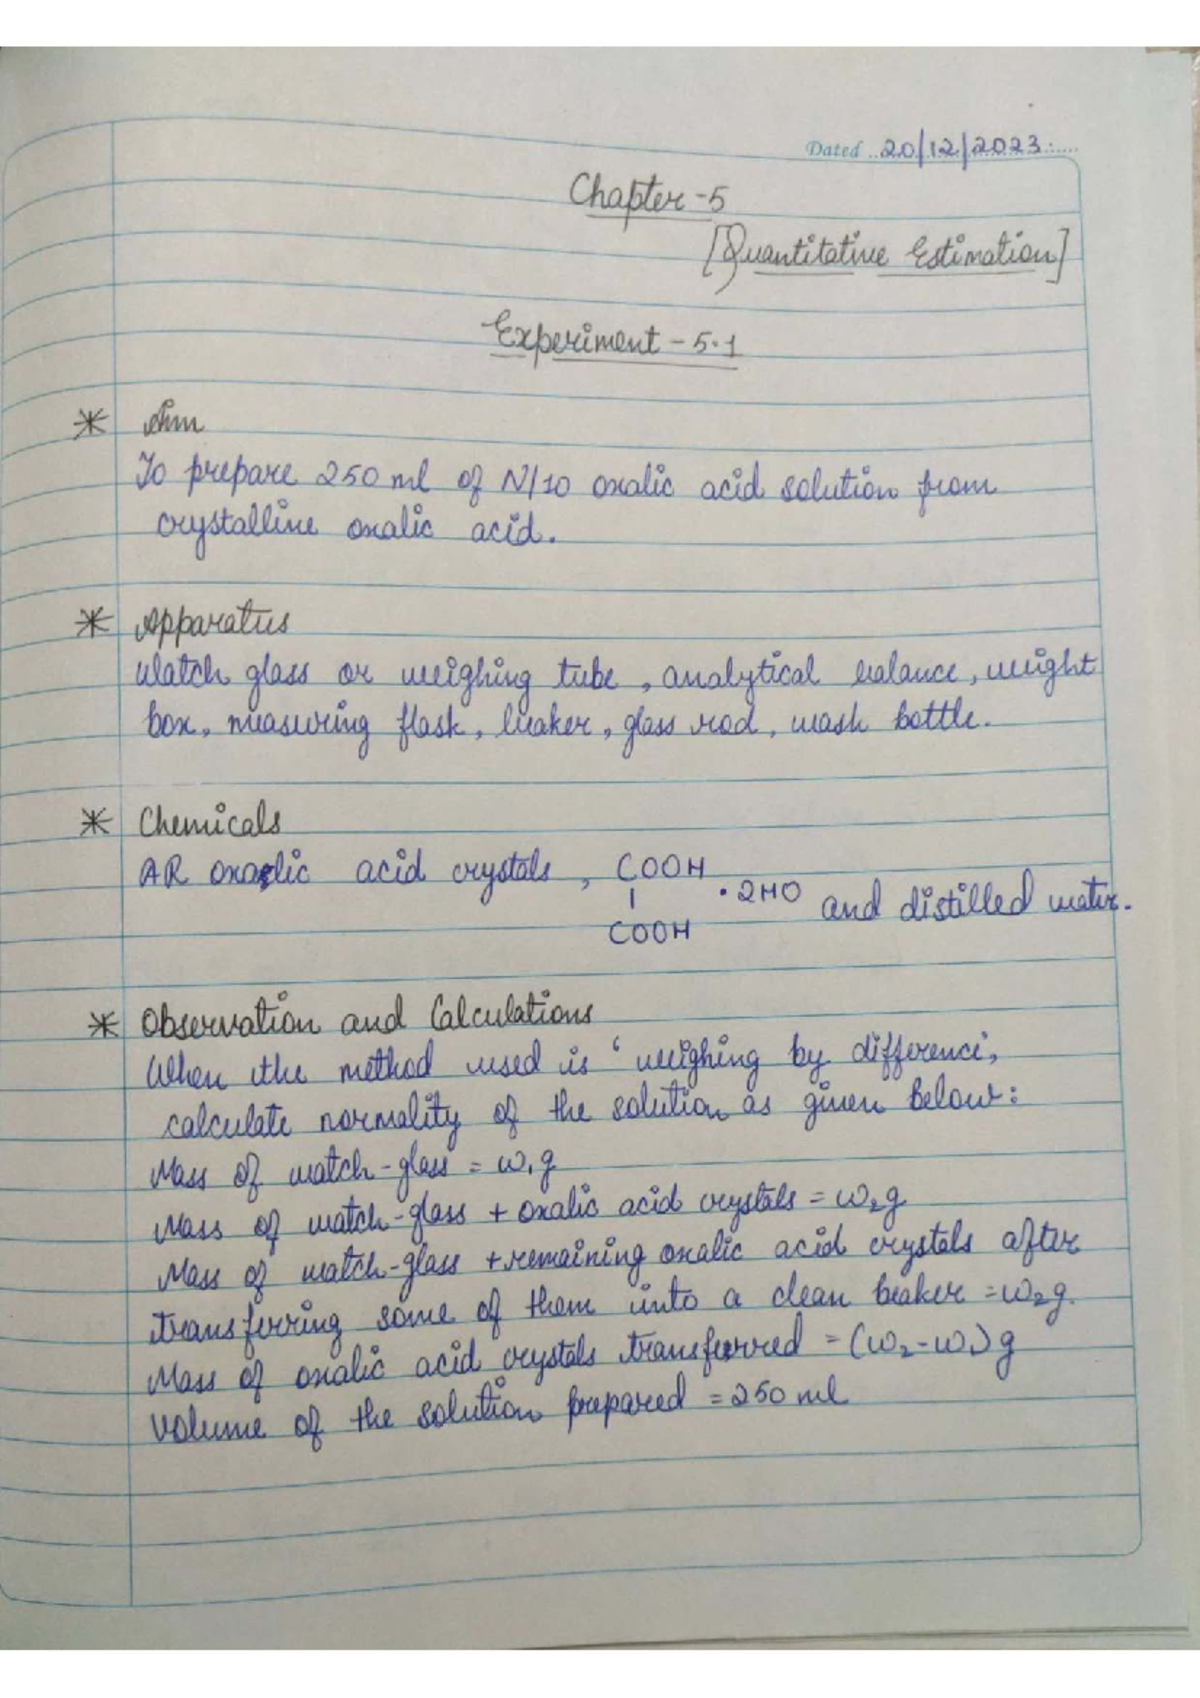 Dated 20/12/2023
Chapter-5
[Quantitative Estimation]
Experiment-5.1
* Aim
To prepare 250 ml of N/10 oxalic acid solution from
crystalline oxalic acid.
* Apparatus
Watch glass or weighing tube, analytical balance, weight
box, measuring flask, beaker, glass rod, wash bottle.
* Chemicals
AR oxalic acid crystals, COOH
|
· 2HO and distilled water.
COOH
* Observation and Calculations
When the method used is 'weighing by difference',
calculate normality of the solution as given below:
Mass of watch-glass = w₁g
Mass of watch-glass + oxalic acid crystals = w₂g
Mass of watch-glass + remaining oxalic acid crystals after
transferring some of them into a clean beaker = w₂g.
Mass of oxalic acid crystals transferred = (w₂-w₁)g
Volume of the solution prepared = 250 ml